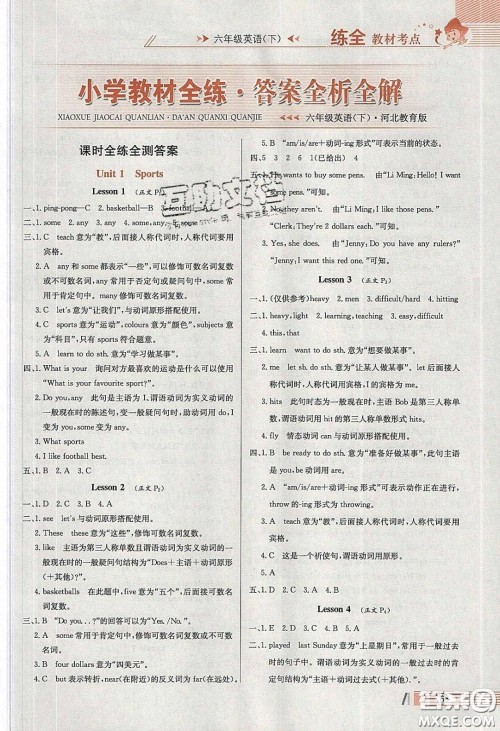 六年级英语(下)
练全 教材考点
小学教材全练·答案全析全解
XIAOXUE JIAOCAI QUANLIAN · DA'AN QUANXI QUANJIE
六年级英语(下)·河北教育版
课时全练全测答案
Unit 1 Sports
Lesson 1 (正文 P1)
一、1. ping-pong—C 2. basketball—B 3. football
二、1. some 2. any 3. some;any 4. many
三、1. C teach 意为“教”,后面接人称代词时,人称代词要用
宾格。
2. A any 和 some 都表示“一些”,可以修饰可数名词复数
或不可数名词,any 常用于否定句或疑问句中,some 常
用于肯定句中。many 修饰可数名词复数。
3. C let's 意为“让我们”,与动词原形搭配使用。
4. C sports 意为“运动”,colours 意为“颜色”,subjects 意
为“科目”,只有 sports 符合题意。
5. A learn to do sth. 意为“学习做某事”。
四、1. What is your 询问对方最喜欢的运动是什么可以使用
“What is your favourite sport?”。
2. Do you,any 此句主语为 I,谓语动词为实义动词的一
般现在时的陈述句,变一般疑问句时,助动词用 do;
some 变为 any。
3. What sports
4. I like football best.
五、1. B 2. A 3. C
Lesson 2 (正文 P2)
一、1. C 2. D 3. B 4. A
二、1. see let's 与动词原形搭配使用。
2. These these 意为“这些”,修饰可数名词复数。
3. like 主语为第三人称单数且谓语动词为实义动词的一
般现在时的一般疑问句结构为“Does+主语+动词原形
(+其他)?”。
4. basketballs 在此题中,five 意为“五个”,后面接可数名
词复数。
三、1. B “Do you...?”的回答可以为“Yes./No.”。
2. A some 常用于肯定句中,修饰可数名词复数或不可数
名词。
3. B four dollars 意为“四美元”。
4. C but 表示转折,near(在附近)的反义词为 far(远的)。
5. B “am/is/are+动词-ing 形式”可表示当前的状态。
四、5 3 2 6 1(已给出) 4
五、1. He wants to buy some pens. 由“Li Ming:Hello! I want
some pens.”可知。
2. No,they aren't. 由“Li Ming:I like those pens.”
“Clerk:They're 2 dollars each.”可知。
3. Yes,she does. 由“Jenny:Do you have any rulers?”
“Jenny:I want this red one.”可知。
Lesson 3 (正文 P3)
一、1. (仅供参考)heavy 2. men 3. difficult/hard 4. hitting
二、1. heavy 2. learn 3. difficult/hard 4. light
5. this,that
三、1. learn want to do sth. 意为“想要做某事”。
2. me let sb. do sth. 意为“让某人做某事”,人称代词要
用宾格形式,I 的宾格为 me。
3. hits 此句为一般现在时,主语 Bob 是第三人称单数,
谓语动词用 hit 的第三人称单数形式 hits。
4. fly 情态动词 can 与动词原形搭配使用。
四、1. C be ready to do sth. 意为“准备好做某事”,此句主语
是 you,be 动词用 are。
2. B “am/is/are+动词-ing 形式”可表示动作正在进行,
throw 的-ing 形式为 throwing。
3. A teach 意为“教”,后面接人称代词时,人称代词要用
宾格。
4. C 这是一个祈使句,谓语动词用原形。
5. A
五、1. D 2. C 3. A 4. B
Lesson 4 (正文 P4)
一、1. B 2. C 3. A 4. C
二、1. played last Sunday 意为“上星期日”,用于一般过去
时的句子中。谓语动词为实义动词的一般过去时的肯
定句结构为“主语+动词的过去式(+其他)”。